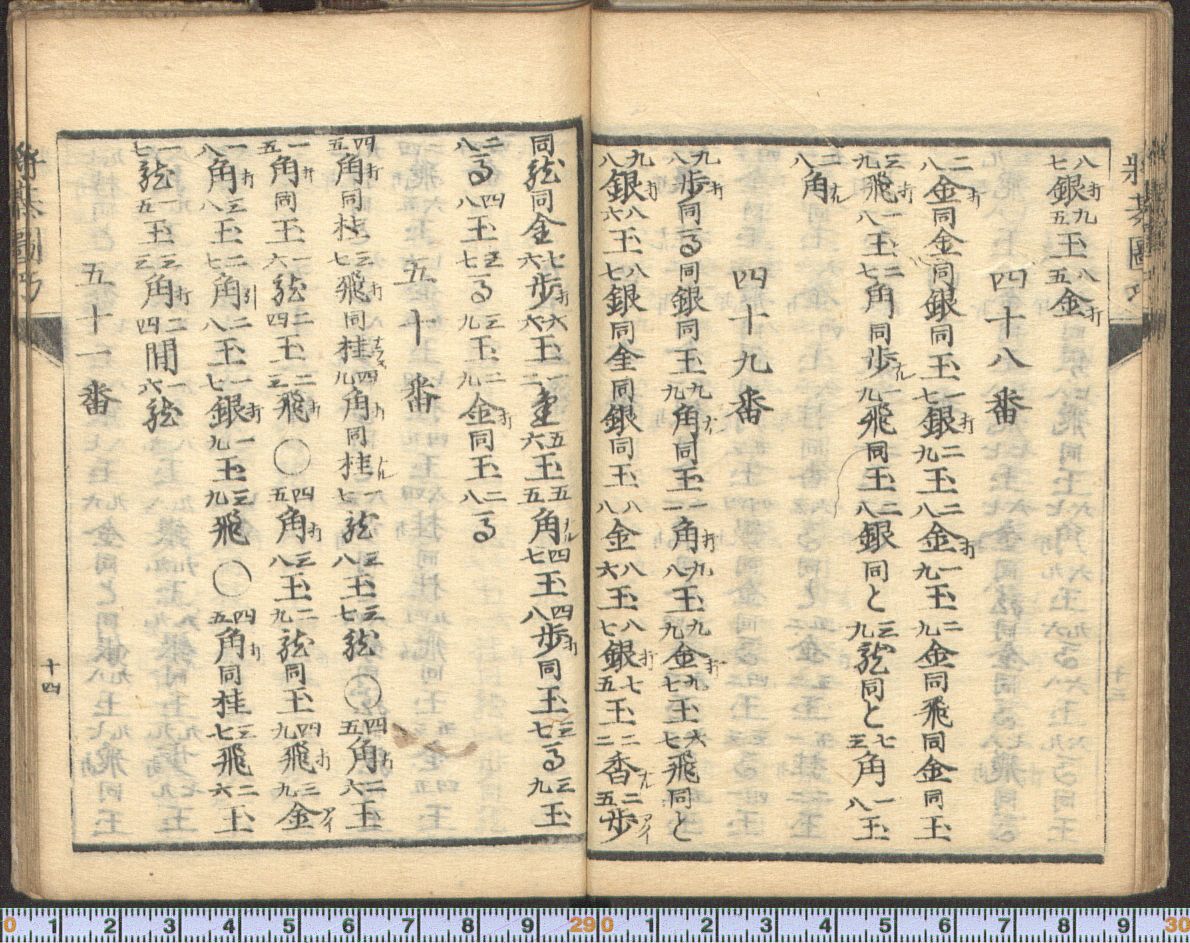 将棊圖巧
八七銀打九五玉八五金打
四十八番
二八金打同金同銀同玉一七銀打二九玉二八金打一九玉二九金同飛同金同玉
三九飛打一八玉二七角同歩ナル一九飛同玉二八銀同と三九龍同と七三角一八玉
二八角ナル
四十九番
九八歩打同馬同銀同玉九九角同玉一一角打九八玉九九金打九七玉六七飛同と
九八銀打八六玉八七銀同金同銀同玉八八金八六玉八七銀打七五玉二二香ナル二五歩アイ
同龍同金七六歩打六六玉五六玉五五角ナル四七玉四八歩打同玉三七馬三九玉
二八馬四八玉三七馬三九玉二九金打同玉二八馬
五十番
四五角打同桂三七飛打同桂ナラズ四九角打同桂ナル一七龍三八玉三七龍○四五角打二六玉
一五角打同玉一六龍二四玉二三飛打○四五角打三八玉二九龍同玉四九飛打三九金アイ
一八角打三八玉二七角引二八玉一七銀打一九玉三九飛○四五角打同桂三七飛二六玉
一七龍一五玉三三角打二四間一六龍
五十一番
十四